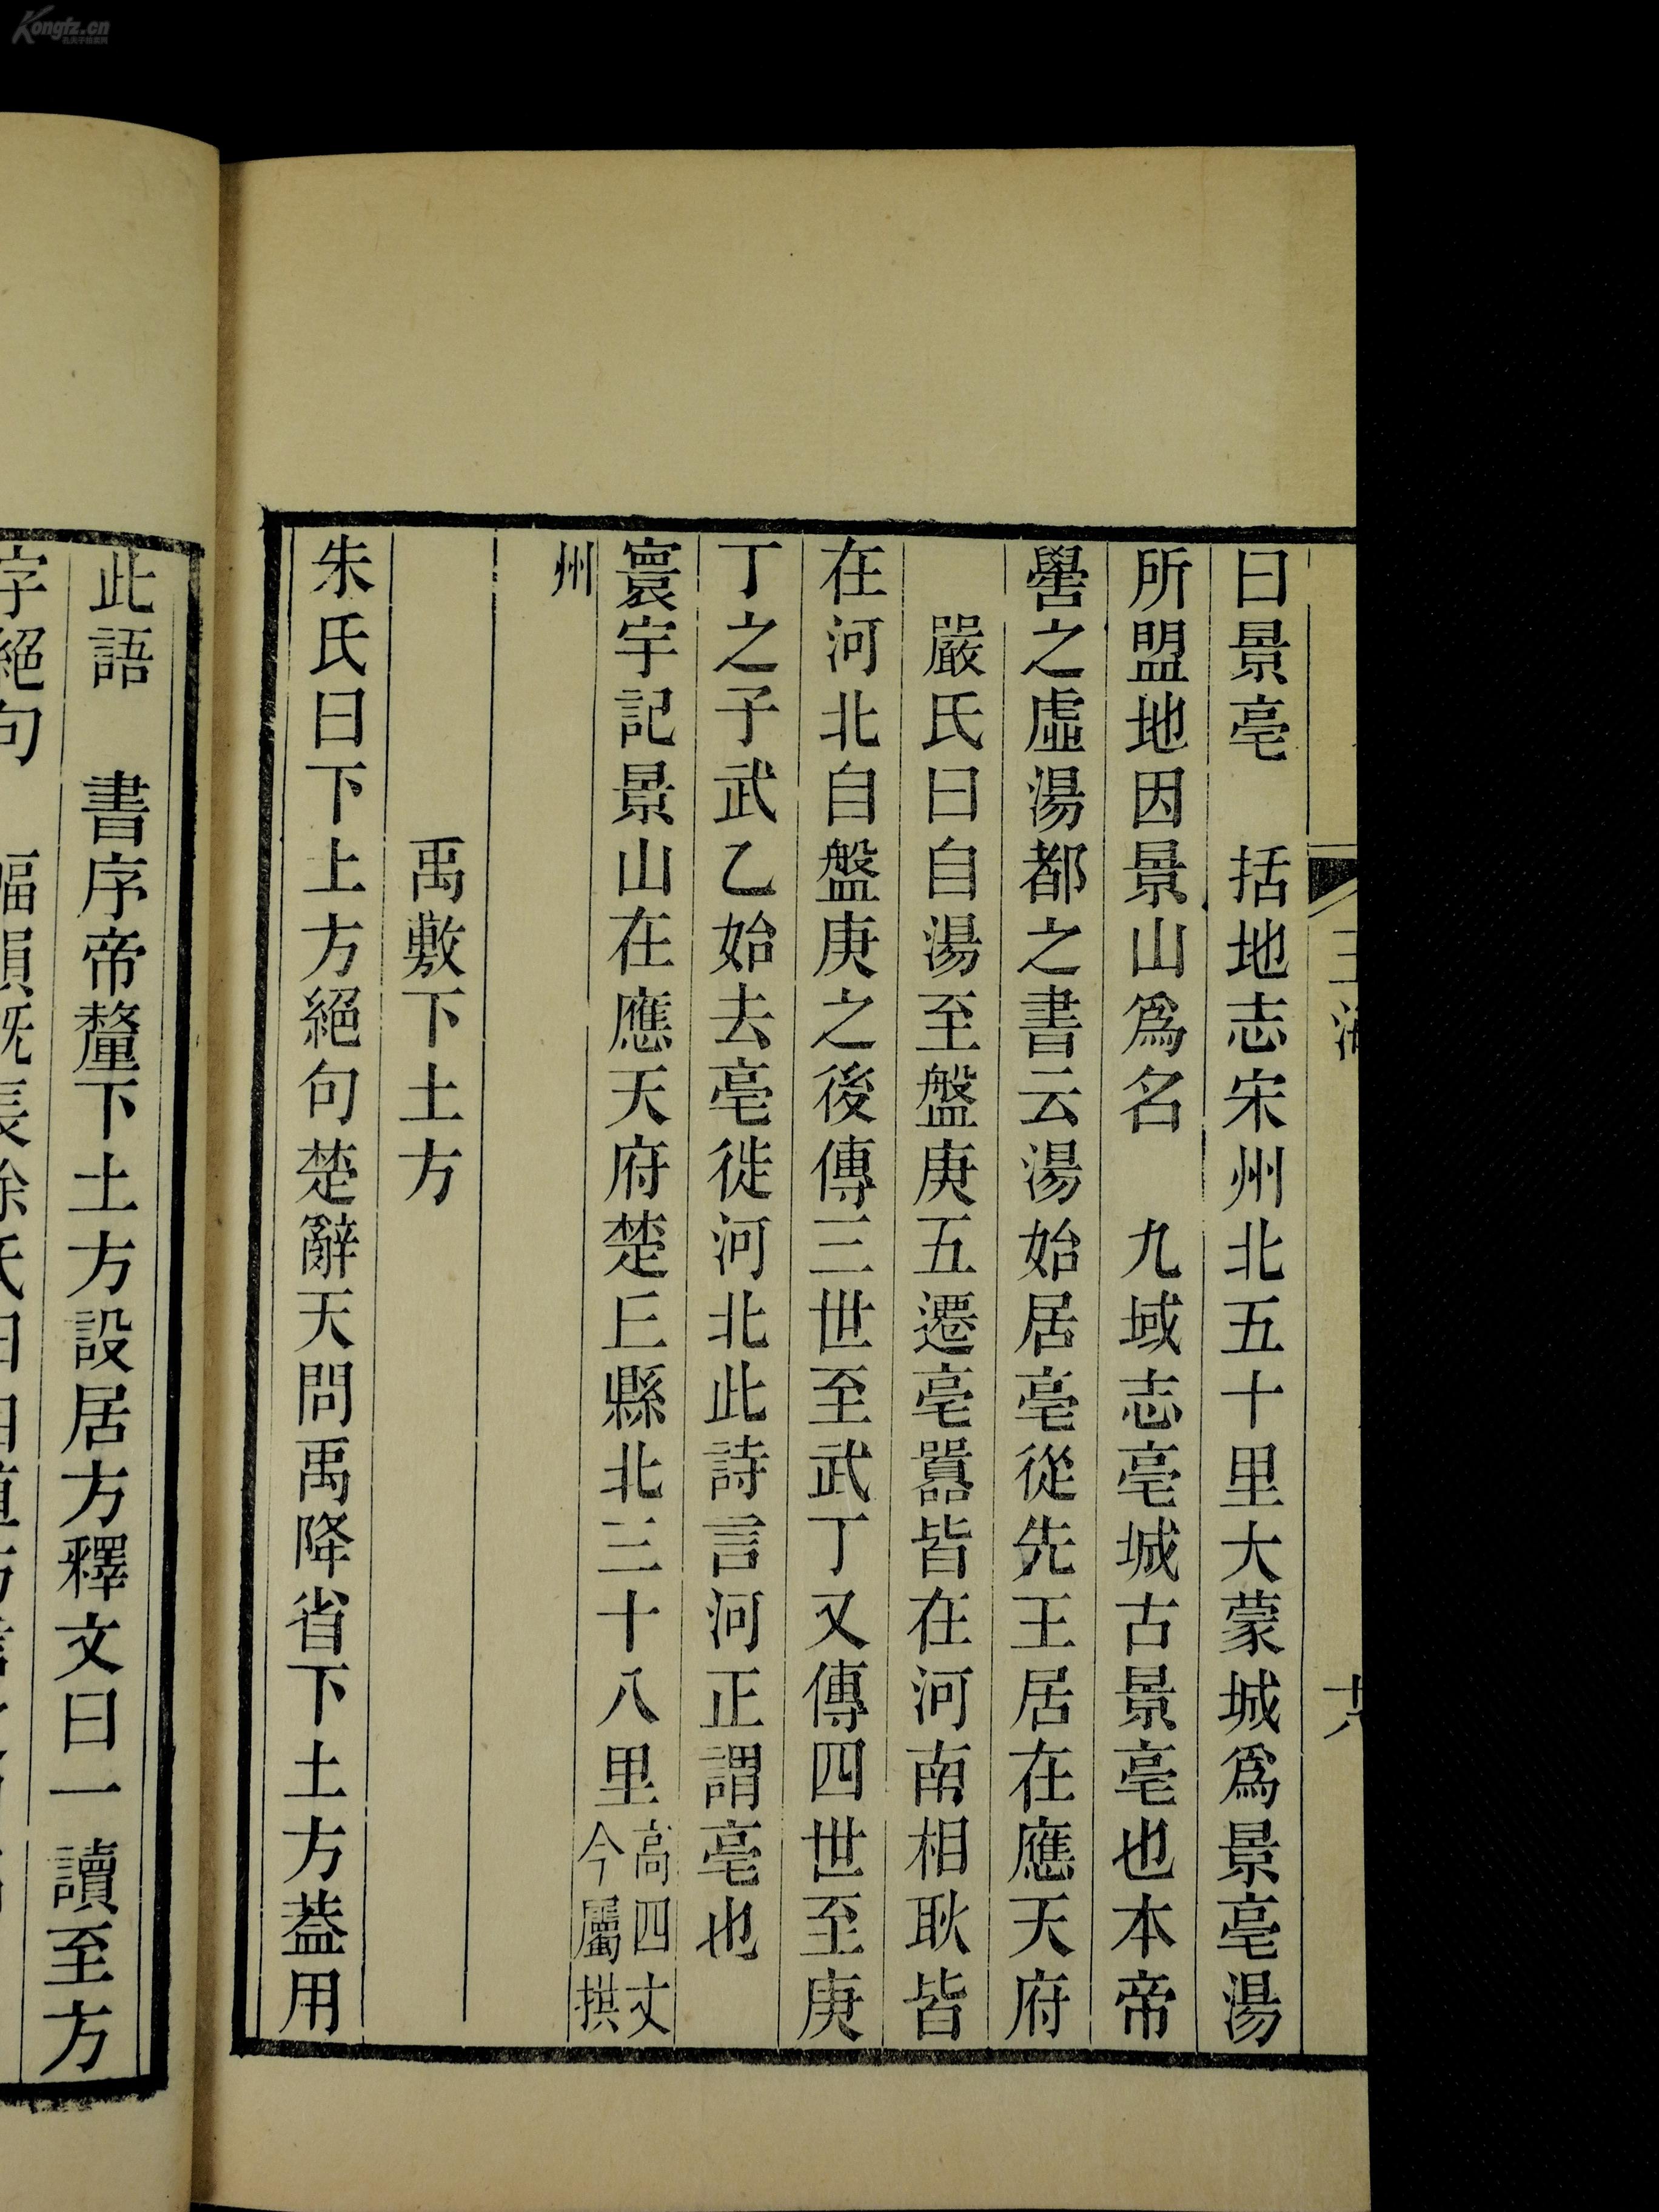 Kongfz.cn
曰景亳　括地志宋州北五十里大蒙城爲景亳湯
所盟地因景山爲名　九域志亳城古景亳也本帝
嚳之虛湯都之書云湯始居亳從先王居在應天府
嚴氏曰自湯至盤庚五遷亳囂皆在河南相耿皆
在河北自盤庚之後傳三世至武丁又傳四世至庚
丁之子武乙始去亳徙河北此詩言河正謂亳也
寰宇記景山在應天府楚丘縣北三十八里高四丈今屬拱
州
禹敷下土方
朱氏曰下土方絕句楚辭天問禹降省下土方葢用
此語　書序帝釐下土方設居方釋文曰一讀至方
字絕句
十六